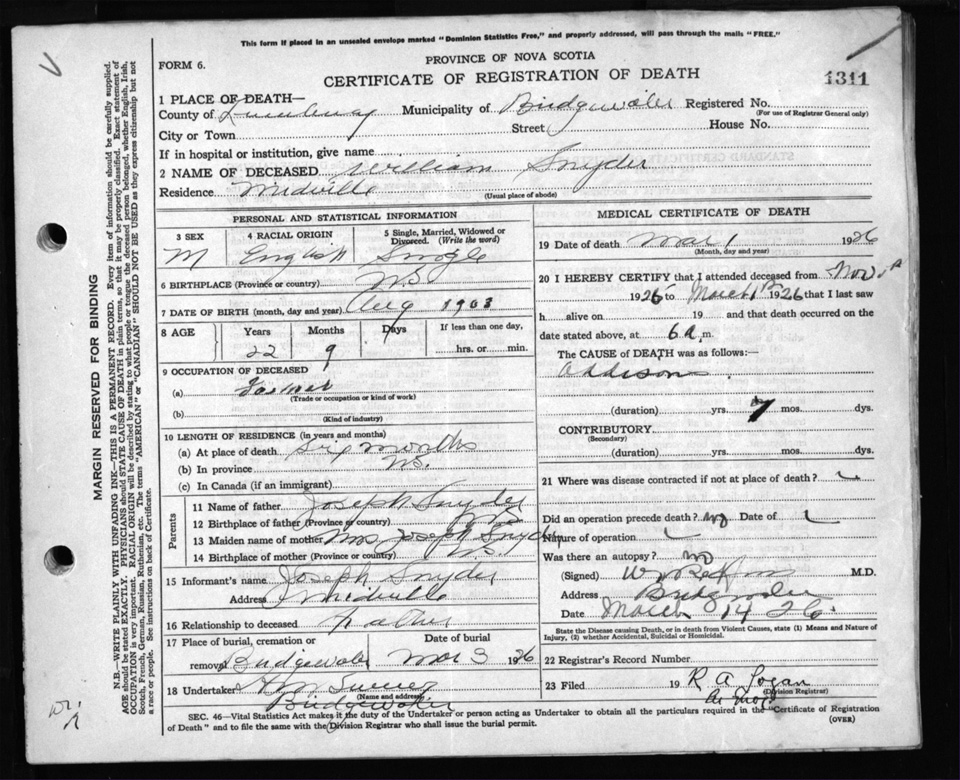 This form if placed in an unsealed envelope marked "Dominion Statistics Free," and properly addressed, will pass through the mails "FREE."
FORM 6.
PROVINCE OF NOVA SCOTIA
CERTIFICATE OF REGISTRATION OF DEATH
1311
1 PLACE OF DEATH—
County of Lunenburg Municipality of Bridgewater Registered No.
(For use of Registrar General only)
City or Town Street House No.
If in hospital or institution, give name
2 NAME OF DECEASED William Snyder
Residence Midville
(Usual place of abode)
PERSONAL AND STATISTICAL INFORMATION
3 SEX 4 RACIAL ORIGIN 5 Single, Married, Widowed or Divorced. (Write the word)
M English Single
6 BIRTHPLACE (Province or country) N.S.
7 DATE OF BIRTH (month, day and year) Aug 1903
8 AGE Years Months Days If less than one day,
22 9 hrs. or min.
9 OCCUPATION OF DECEASED
(a) Farmer
(Trade or occupation or kind of work)
(b)
(Kind of industry)
10 LENGTH OF RESIDENCE (in years and months)
(a) At place of death six months
(b) In province N.S.
(c) In Canada (if an immigrant)
Parents
11 Name of father Joseph Snyder
12 Birthplace of father (Province or country) N.S.
13 Maiden name of mother Mrs Joseph Snyder
14 Birthplace of mother (Province or country) N.S.
15 Informant's name Joseph Snyder
Address Midville
16 Relationship to deceased Father
17 Place of burial, cremation or removal Date of burial
Bridgewater Mar 3 1926
18 Undertaker
(Name and address)
Bridgewater
MEDICAL CERTIFICATE OF DEATH
19 Date of death Mar 1 1926
(Month, day and year)
20 I HEREBY CERTIFY that I attended deceased from Nov
1925 to March 1st 1926 that I last saw
h alive on 19 and that death occurred on the
date stated above, at 6 a. m.
The CAUSE of DEATH was as follows:—
Addisons
(duration) yrs. 7 mos. dys.
CONTRIBUTORY
(Secondary)
(duration) yrs. mos. dys.
21 Where was disease contracted if not at place of death?
Did an operation precede death? no Date of
Nature of operation
Was there an autopsy? no
(Signed) M.D.
Address Bridgewater
Date March 14 26
State the Disease causing Death, or in death from Violent Causes, state (1) Means and Nature of Injury, (2) whether Accidental, Suicidal or Homicidal.
22 Registrar's Record Number
23 Filed 19 R A Logan
(Division Registrar)
SEC. 46—Vital Statistics Act makes it the duty of the Undertaker or person acting as Undertaker to obtain all the particulars required in the "Certificate of Registration
of Death" and to file the same with the Division Registrar who shall issue the burial permit.
(OVER)
MARGIN RESERVED FOR BINDING
N.B.—WRITE PLAINLY WITH UNFADING INK—THIS IS A PERMANENT RECORD. Every item of information should be carefully supplied.
AGE should be stated EXACTLY. PHYSICIANS should STATE CAUSE OF DEATH in plain terms, so that it may be properly classified. Exact statement of
OCCUPATION is very important. RACIAL ORIGIN will be described by stating to what people or tongue the deceased person belonged, whether English, Irish,
Scotch, French, German, Russian, Ruthenian, etc. The terms "AMERICAN" or "CANADIAN" SHOULD NOT BE USED as they express citizenship but not
a race or people. See instructions on back of Certificate.